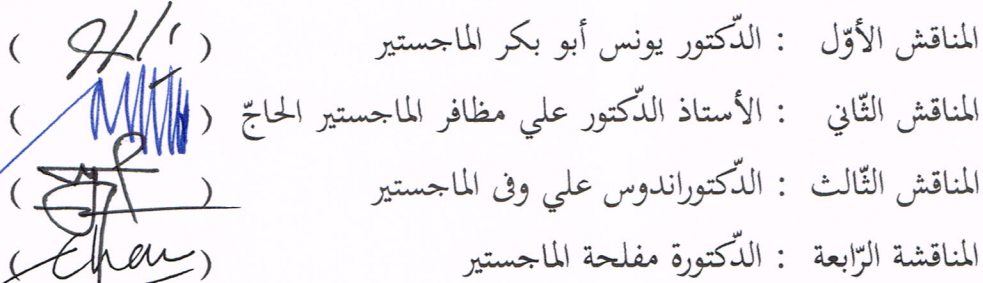 المناقش الأوّل : الدّكتور يونس أبو بكر الماجستير ( )
المناقش الثّاني : الأستاذ الدّكتور علي مظافر الماجستير الحاجّ ( )
المناقش الثّالث : الدّكتوراندوس علي وفى الماجستير ( )
المناقشة الرّابعة : الدّكتورة مفلحة الماجستير ( )